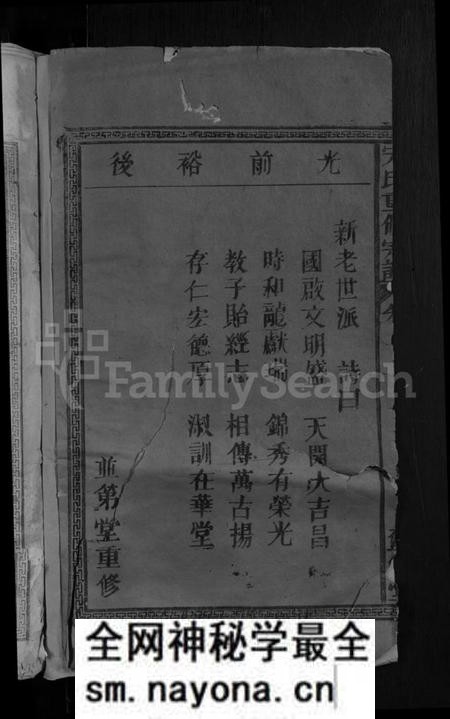 光前裕後
新老世派 詩曰
國啟文明盛 天開大吉昌
時和龍獻瑞 錦秀有榮光
教子貽經志 相傳萬古揚
存仁安德厚 淑訓在華堂
並第堂重修
氏重修宗譜
FamilySearch
全网神秘学最全
sm.nayona.cn